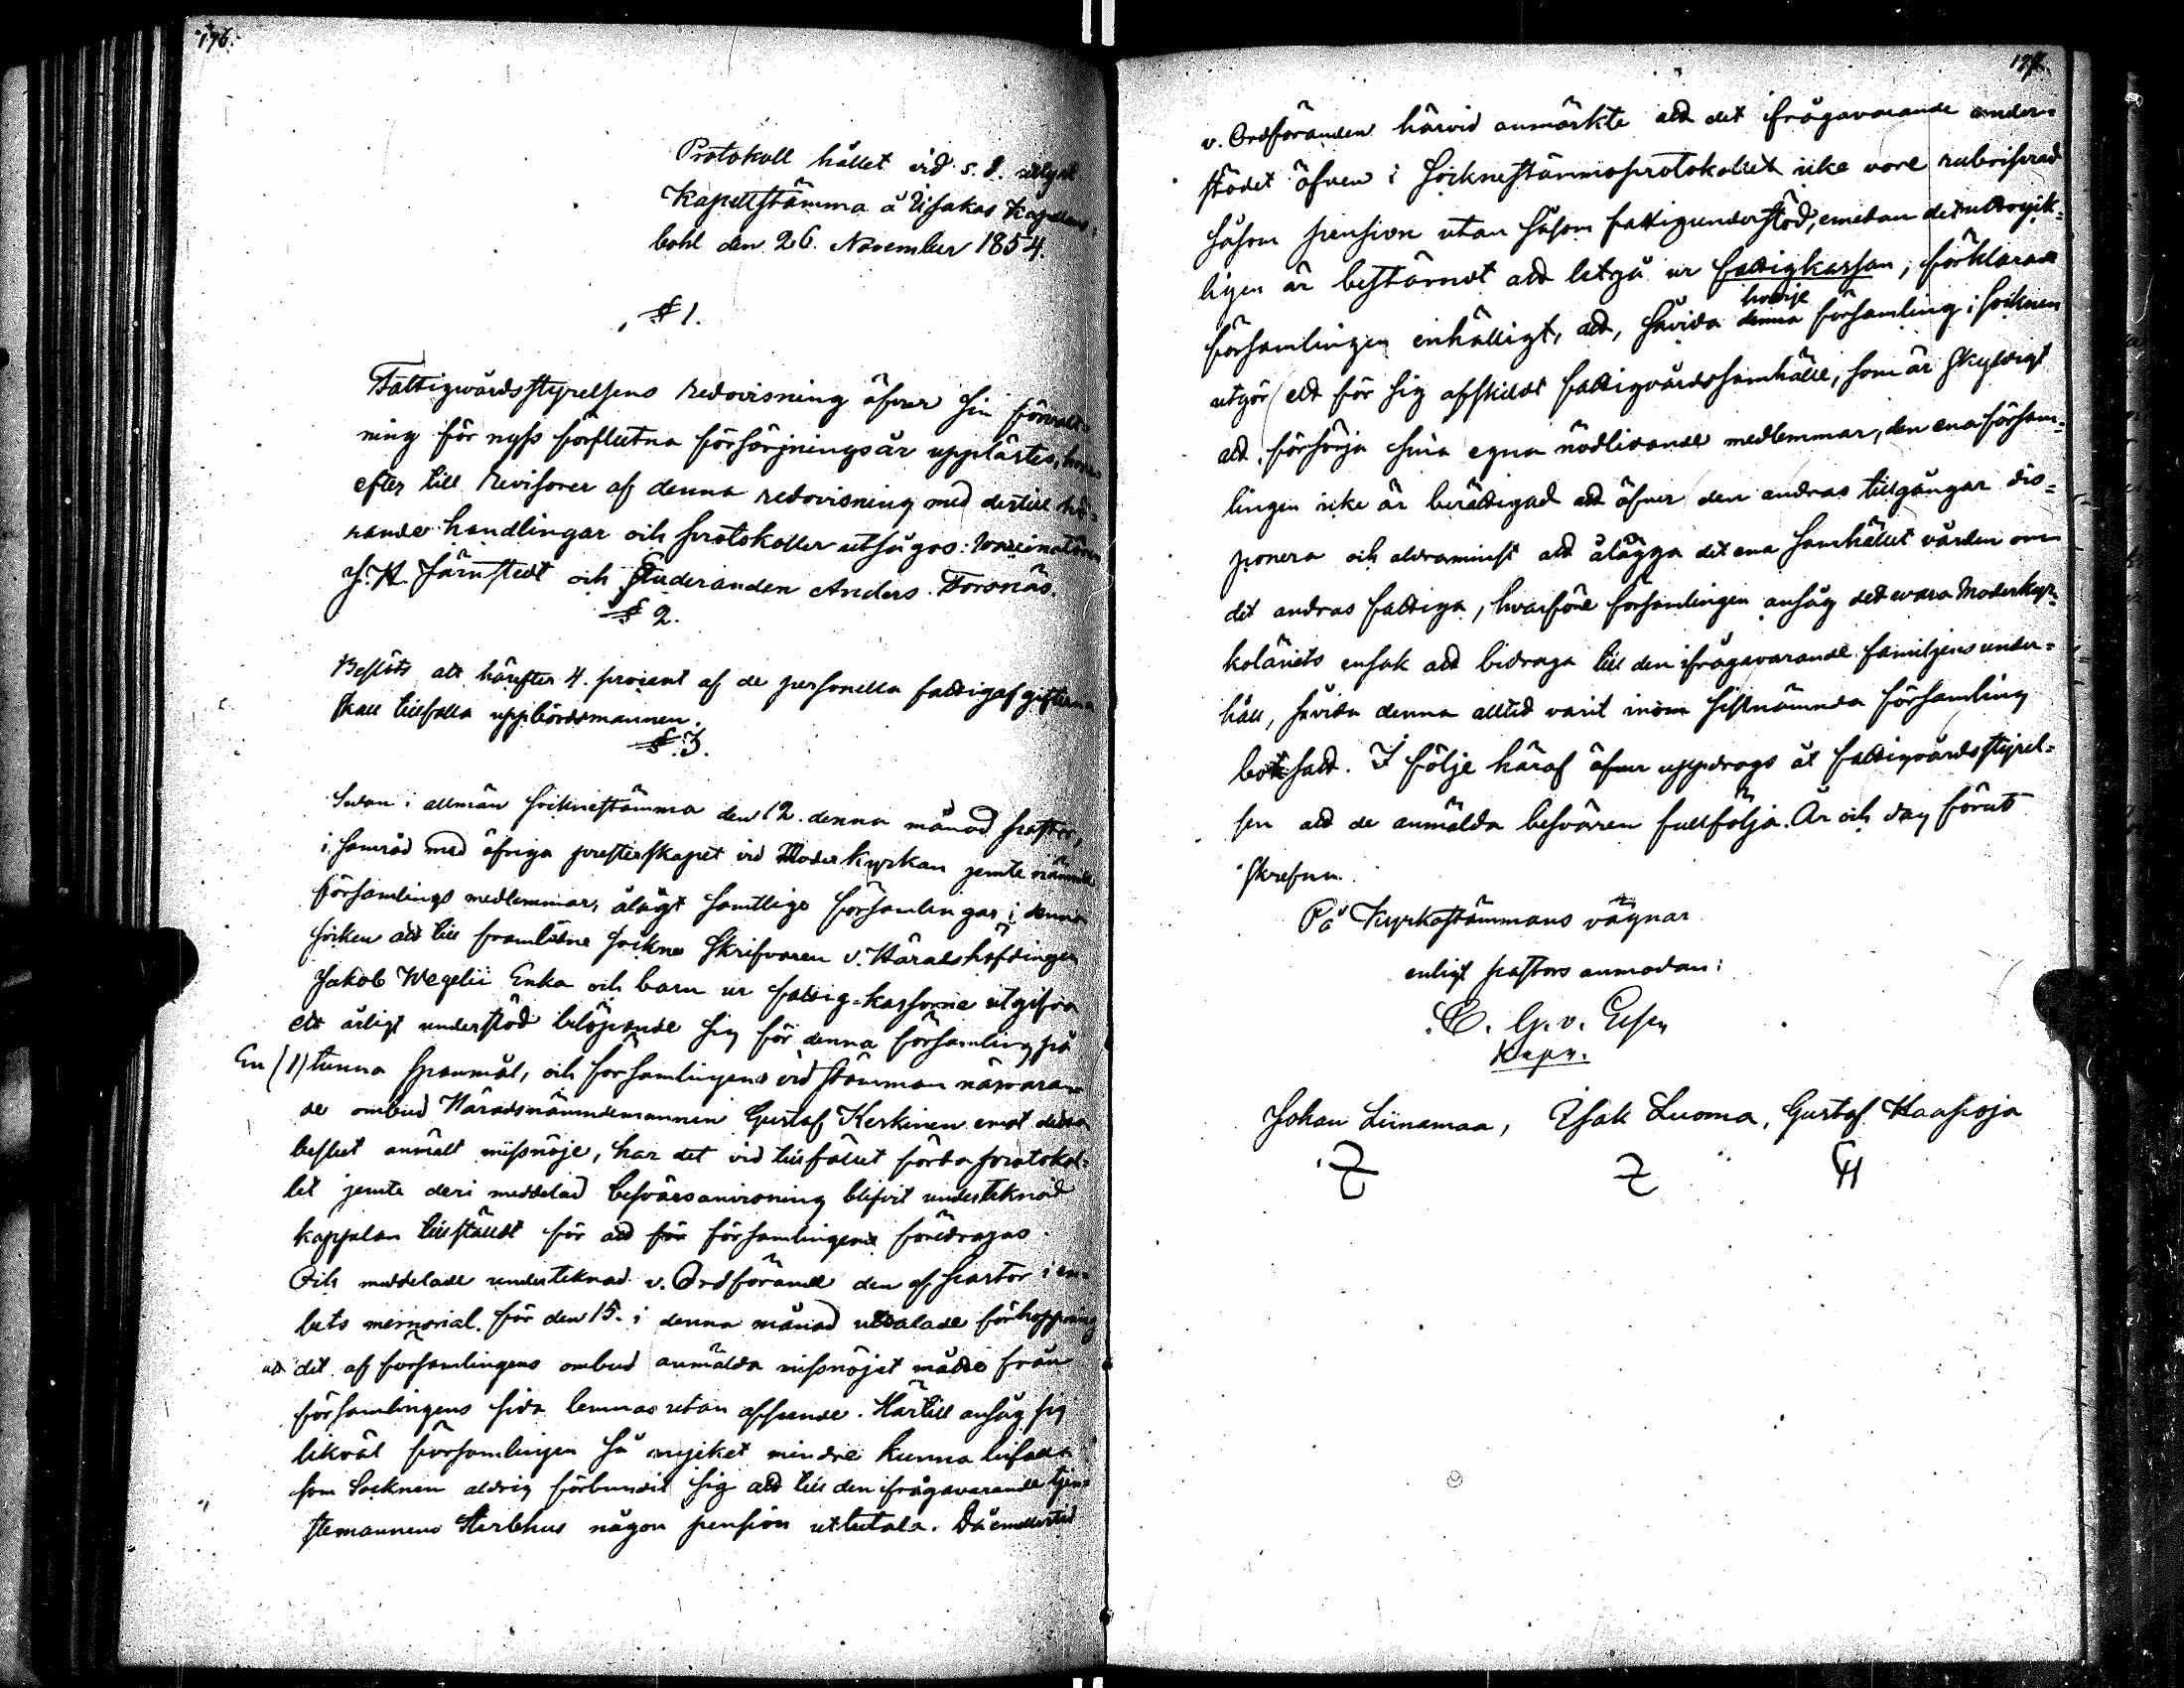 196.
Protokoll hållet vid s. d. utlyst
Kapellstämma å Ylihakas Kapellans-
bohl den 26. November 1854.
§ 1.
Fattigvårdsstyrelsens redovisning öfver sin förvalt-
ning för nyss förflutna försörjningsår upplästes, hvar-
efter till Revisorer af denna redovisning med dertill hö-
rande handlingar och protokoller utsågos: Vaccinatören
J. A. Järnstedt och Studeranden Anders Forsnäs.
§ 2.
Beslöts att härefter 4. procent af de personella fattigafgifterna
skall tillfalla uppbördsmannen.
§ 3.
Sedan i allmän sockenstämma den 12. denna månad pastor,
i samråd med öfriga presterskapet vid Moderkyrkan jemte nämnde
församlings medlemmar, ålagt samtliga församlingar i denna
socken att till framlidne sockne skrifvaren v. Häradshöfdingen
Jakob Wegelii Enka och barn ur fattig-kassorna utgifva
ett årligt understöd belöpande sig för denna församling på
En (1) tunna spanmål, och församlingens vid stämman närvaran-
de ombud Häradsnämndemannen Gustaf Keskinen emot detta
beslut anmält missnöje, har det vid tillfället förda protokol-
let jemte deri meddelad besvärsanvisning blifvit undertecknad
kappelan tillstäldt för att för församlingen föredragas.
Och meddelade undertecknad v. Ordförande den af pastor i em-
bets memorial för den 15. i denna månad uttalade förhoppning
att det af församlingens ombud anmälda missnöjet måtte från
församlingens sida lemnas utan afseende. Härtill ansåg sig
likväl församlingen så mycket mindre kunna bifalla
som Socknen aldrig förbundit sig att till den ifrågavarande tjen-
stemannens Sterbhus någon pension utbetala. Då emellertid
197.
v. Ordföranden härvid anmärkte att det ifrågavarande under-
stödet äfven i Sockenstämmoprotokollet icke vore rubricerad
såsom pension utan såsom fattigunderstöd, emedan det uttryck-
ligen är bestämdt att utgå ur fattigkassan, förklarade
församlingen enhälligt, att, såvida denna församling i socknen
hvarje
utgör ett för sig afskildt fattigvårdssamhälle, som är skyldigt
att försörja sina egna nödlidande medlemmar, den ena försam-
lingen icke är berättigad att öfver den andras tillgångar dis-
ponera och aldraminst att ålägga det ena samhället vården om
det andras fattiga, hvarföre församlingen ansåg det vara Moderkyr-
kolänets ensak att bidraga till den ifrågavarande familjens under-
håll, såvida denna alltid varit inom sistnämnda församling
bosatt. I följe häraf äfven uppdrogs åt fattigvårdsstyrel-
sen att de anmälda besvären fullfölja. År och dag förut
skrefven.
På Kyrkostämmans vägnar
enligt pastors anmodan:
C. G. v. Essen
Kapn.
Johan Liinamaa, Isak Luoma, Gustaf Haapoja